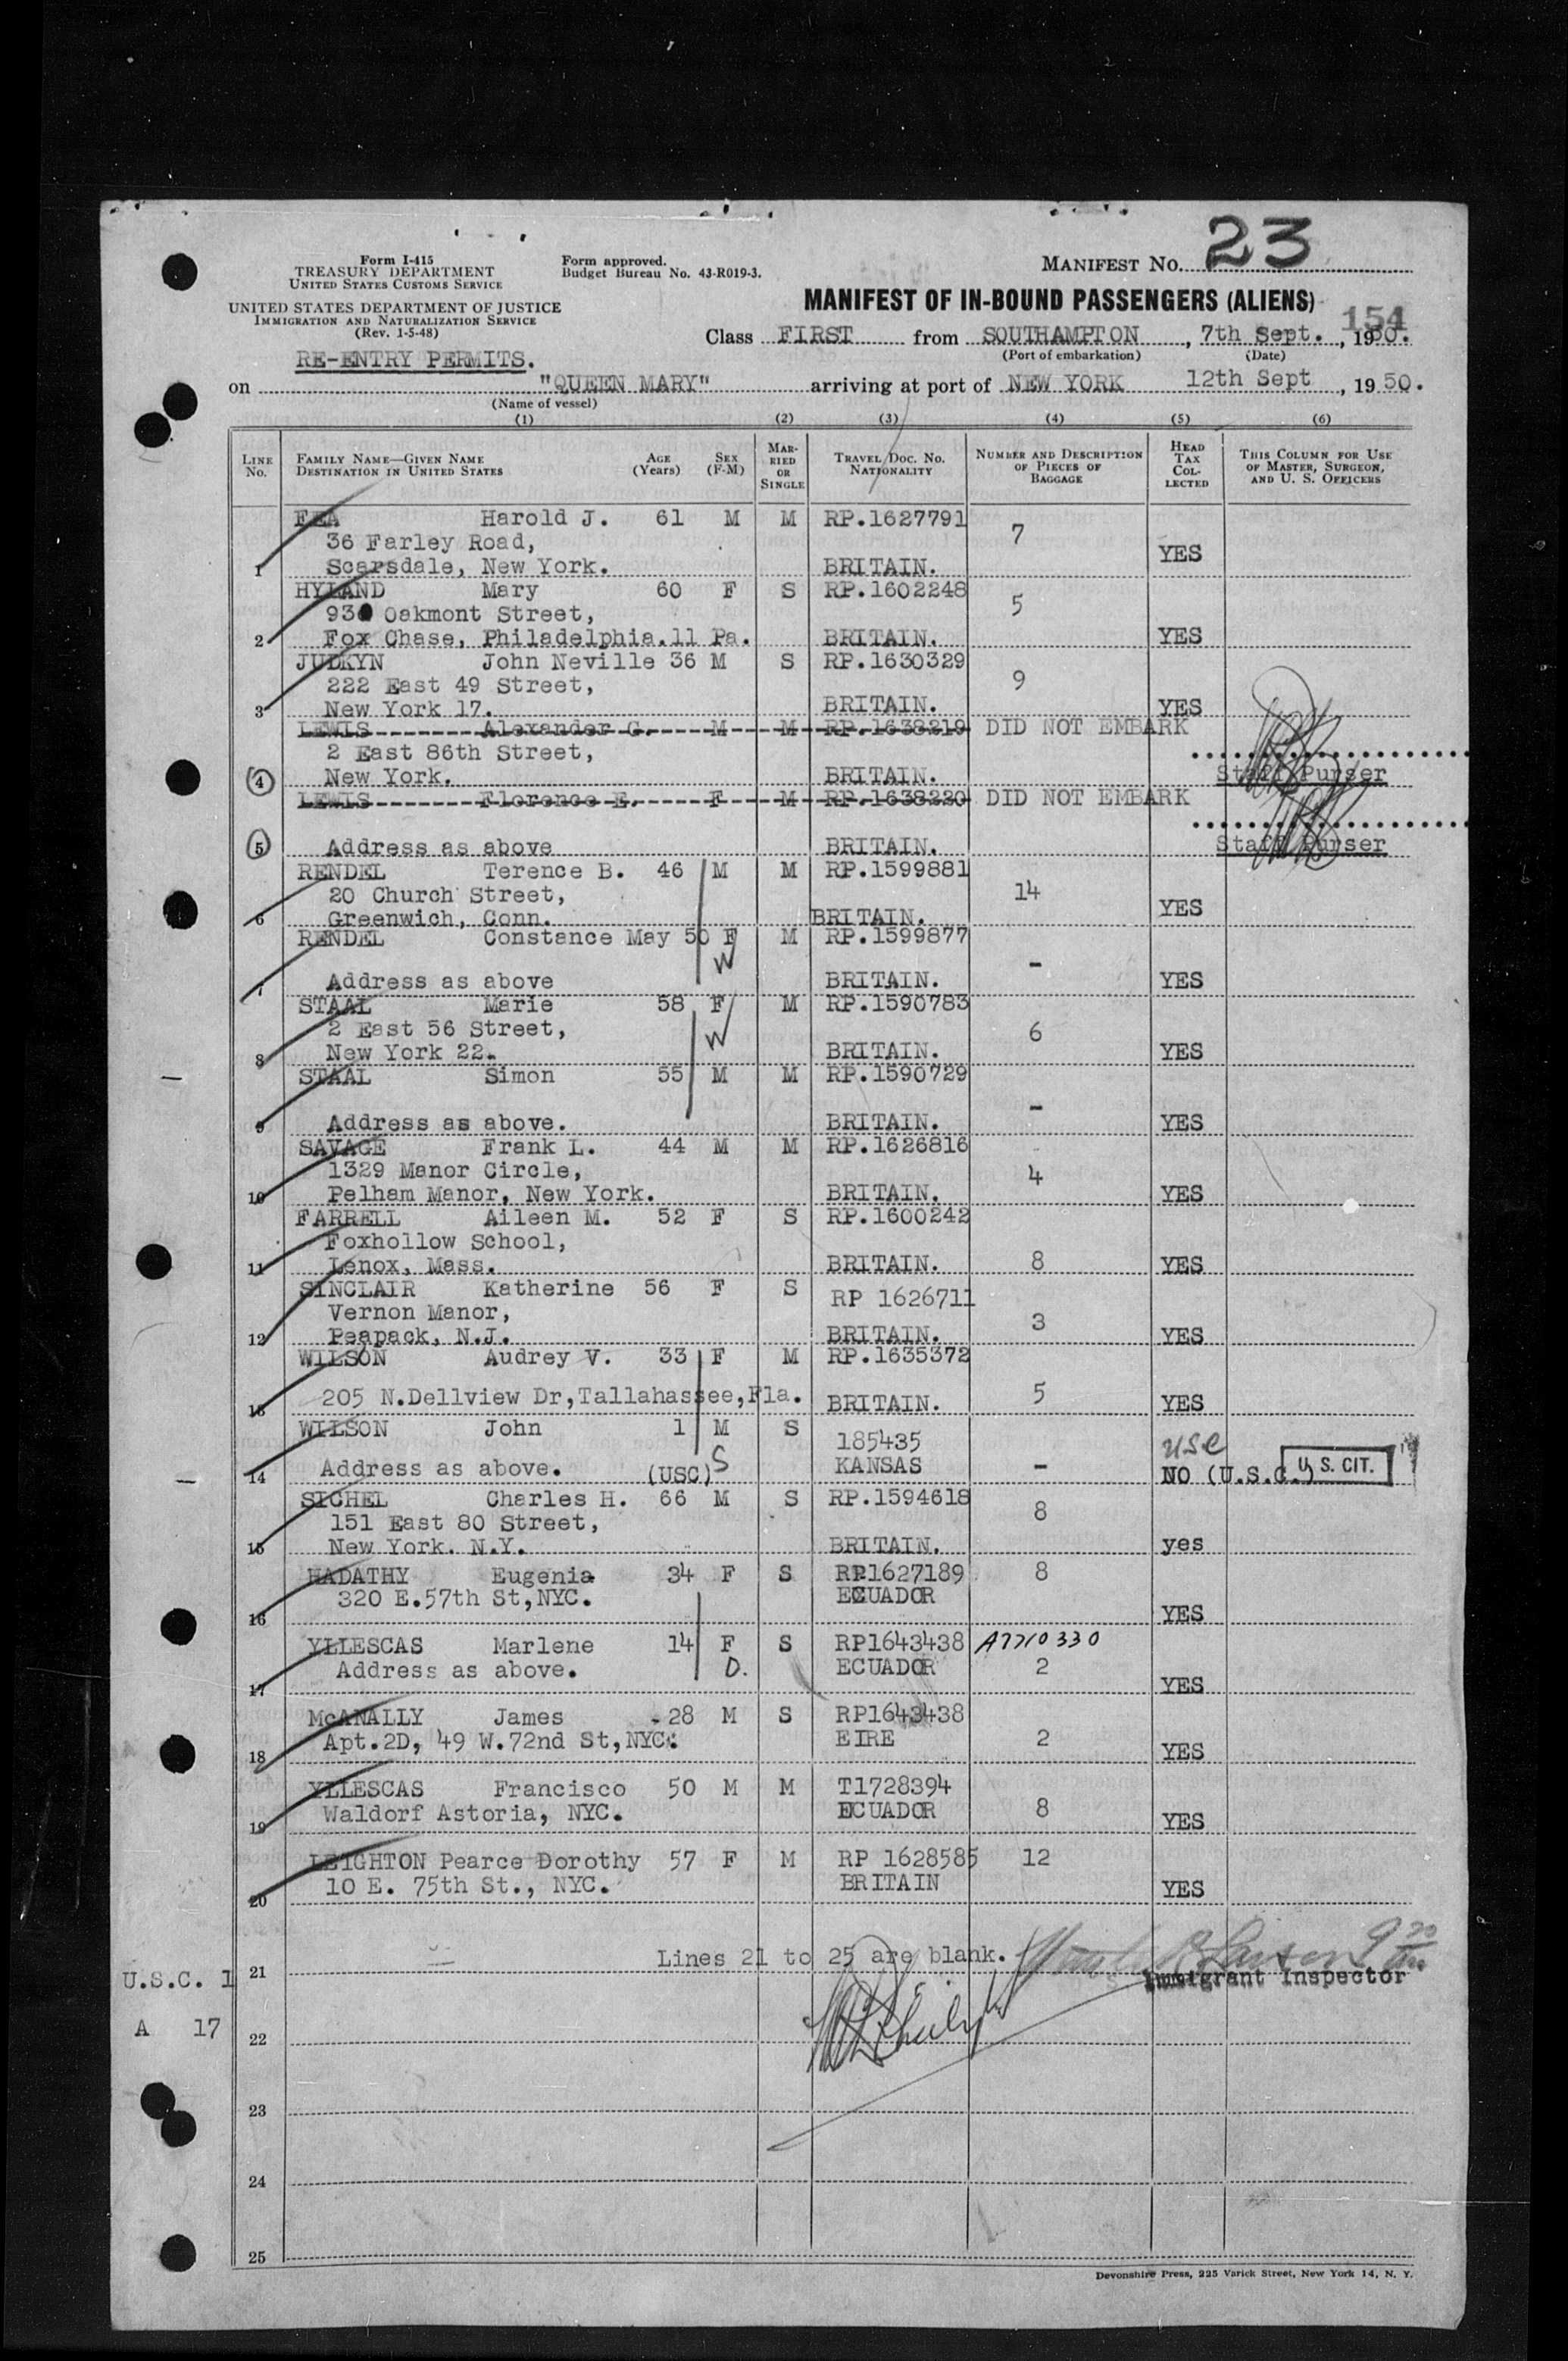 23
Form I-415
TREASURY DEPARTMENT
UNITED STATES CUSTOMS SERVICE
Form approved.
Budget Bureau No. 43-R019-3.
MANIFEST NO.
UNITED STATES DEPARTMENT OF JUSTICE
IMMIGRATION AND NATURALIZATION SERVICE
(Rev. 1-5-48)
MANIFEST OF IN-BOUND PASSENGERS (ALIENS)
154
Class FIRST from SOUTHAMPTON, 7th Sept., 1950.
(Port of embarkation) (Date)
RE-ENTRY PERMITS.
on "QUEEN MARY" arriving at port of NEW YORK 12th Sept, 1950.
(Name of vessel)
(1) (2) (3) (4) (5) (6)
LINE No. FAMILY NAME—GIVEN NAME DESTINATION IN UNITED STATES AGE (Years) SEX (F-M) MARRIED OR SINGLE TRAVEL DOC. NO. NATIONALITY NUMBER AND DESCRIPTION OF PIECES OF BAGGAGE HEAD TAX COLLECTED THIS COLUMN FOR USE OF MASTER, SURGEON, AND U. S. OFFICERS
FEA Harold J. 61 M M RP.1627791
36 Farley Road, 7
1 Scarsdale, New York. BRITAIN. YES
HYLAND Mary 60 F S RP.1602248
93 Oakmont Street, 5
2 Fox Chase, Philadelphia.11 Pa. BRITAIN. YES
JUDKYN John Neville 36 M S RP.1630329
222 East 49 Street, 9
3 New York 17. BRITAIN. YES
LEWIS Alexander G. M M RP.1638219 DID NOT EMBARK
2 East 86th Street,
4 New York. BRITAIN. Staff Purser
LEWIS Florence E. F M RP.1638220 DID NOT EMBARK
5 Address as above BRITAIN. Staff Purser
RENDEL Terence B. 46 M M RP.1599881
20 Church Street, 14
6 Greenwich, Conn. BRITAIN. YES
RENDEL Constance May 50 F M RP.1599877
W -
7 Address as above BRITAIN. YES
STAAL Marie 58 F M RP.1590783
2 East 56 Street, W 6
8 New York 22. BRITAIN. YES
STAAL Simon 55 M M RP.1590729
-
9 Address as above. BRITAIN. YES
SAVAGE Frank L. 44 M M RP.1626816
1329 Manor Circle, 4
10 Pelham Manor, New York. BRITAIN. YES
FARRELL Aileen M. 52 F S RP.1600242
Foxhollow School,
11 Lenox, Mass. BRITAIN. 8 YES
SINCLAIR Katherine 56 F S RP 1626711
Vernon Manor, 3
12 Peapack, N.J. BRITAIN. YES
WILSON Audrey V. 33 F M RP.1635372
13 205 N.Dellview Dr,Tallahassee,Fla. BRITAIN. 5 YES
WILSON John 1 M S 185435 USC
14 Address as above. (USC) S KANSAS - NO (U.S.C.) U. S. CIT.
SICHEL Charles H. 66 M S RP.1594618
151 East 80 Street, 8
15 New York. N.Y. BRITAIN. yes
HADATHY Eugenia 34 F S RP1627189 8
320 E.57th St,NYC. ECUADOR
16 YES
YLLESCAS Marlene 14 F S RP1643438 A7710330
Address as above. D. ECUADOR 2
17 YES
McANALLY James 28 M S RP1643438
Apt.2D, 49 W.72nd St,NYC. EIRE 2
18 YES
YLLESCAS Francisco 50 M M T1728394
Waldorf Astoria, NYC. ECUADOR 8
19 YES
LEIGHTON Pearce Dorothy 57 F M RP 1628585 12
10 E. 75th St., NYC. BRITAIN
20 YES
Lines 21 to 25 are blank.
U.S.C. 1 21 Immigrant Inspector
A 17
22
23
24
25
Devonshire Press, 225 Varick Street, New York 14, N. Y.